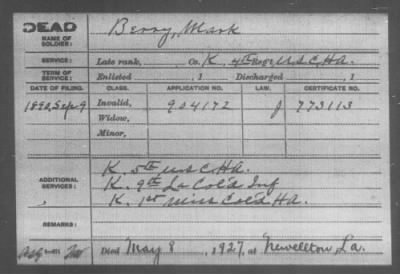 DEAD
NAME OF SOLDIER:
Berry, Mark
SERVICE:
Late rank, Co. K, 4th Reg't U S C HA.
TERM OF SERVICE:
Enlisted , 1 Discharged , 1
DATE OF FILING. CLASS. APPLICATION NO. LAW. CERTIFICATE NO.
1890, Sep 9 Invalid, 904172 J 773113
Widow,
Minor,
ADDITIONAL SERVICES:
K. 5th U S C. HA.
K. 9th La Col'd Inf
K. 1st Miss Col'd HA.
REMARKS:
Died May 8, 1927, at Newellton, La.